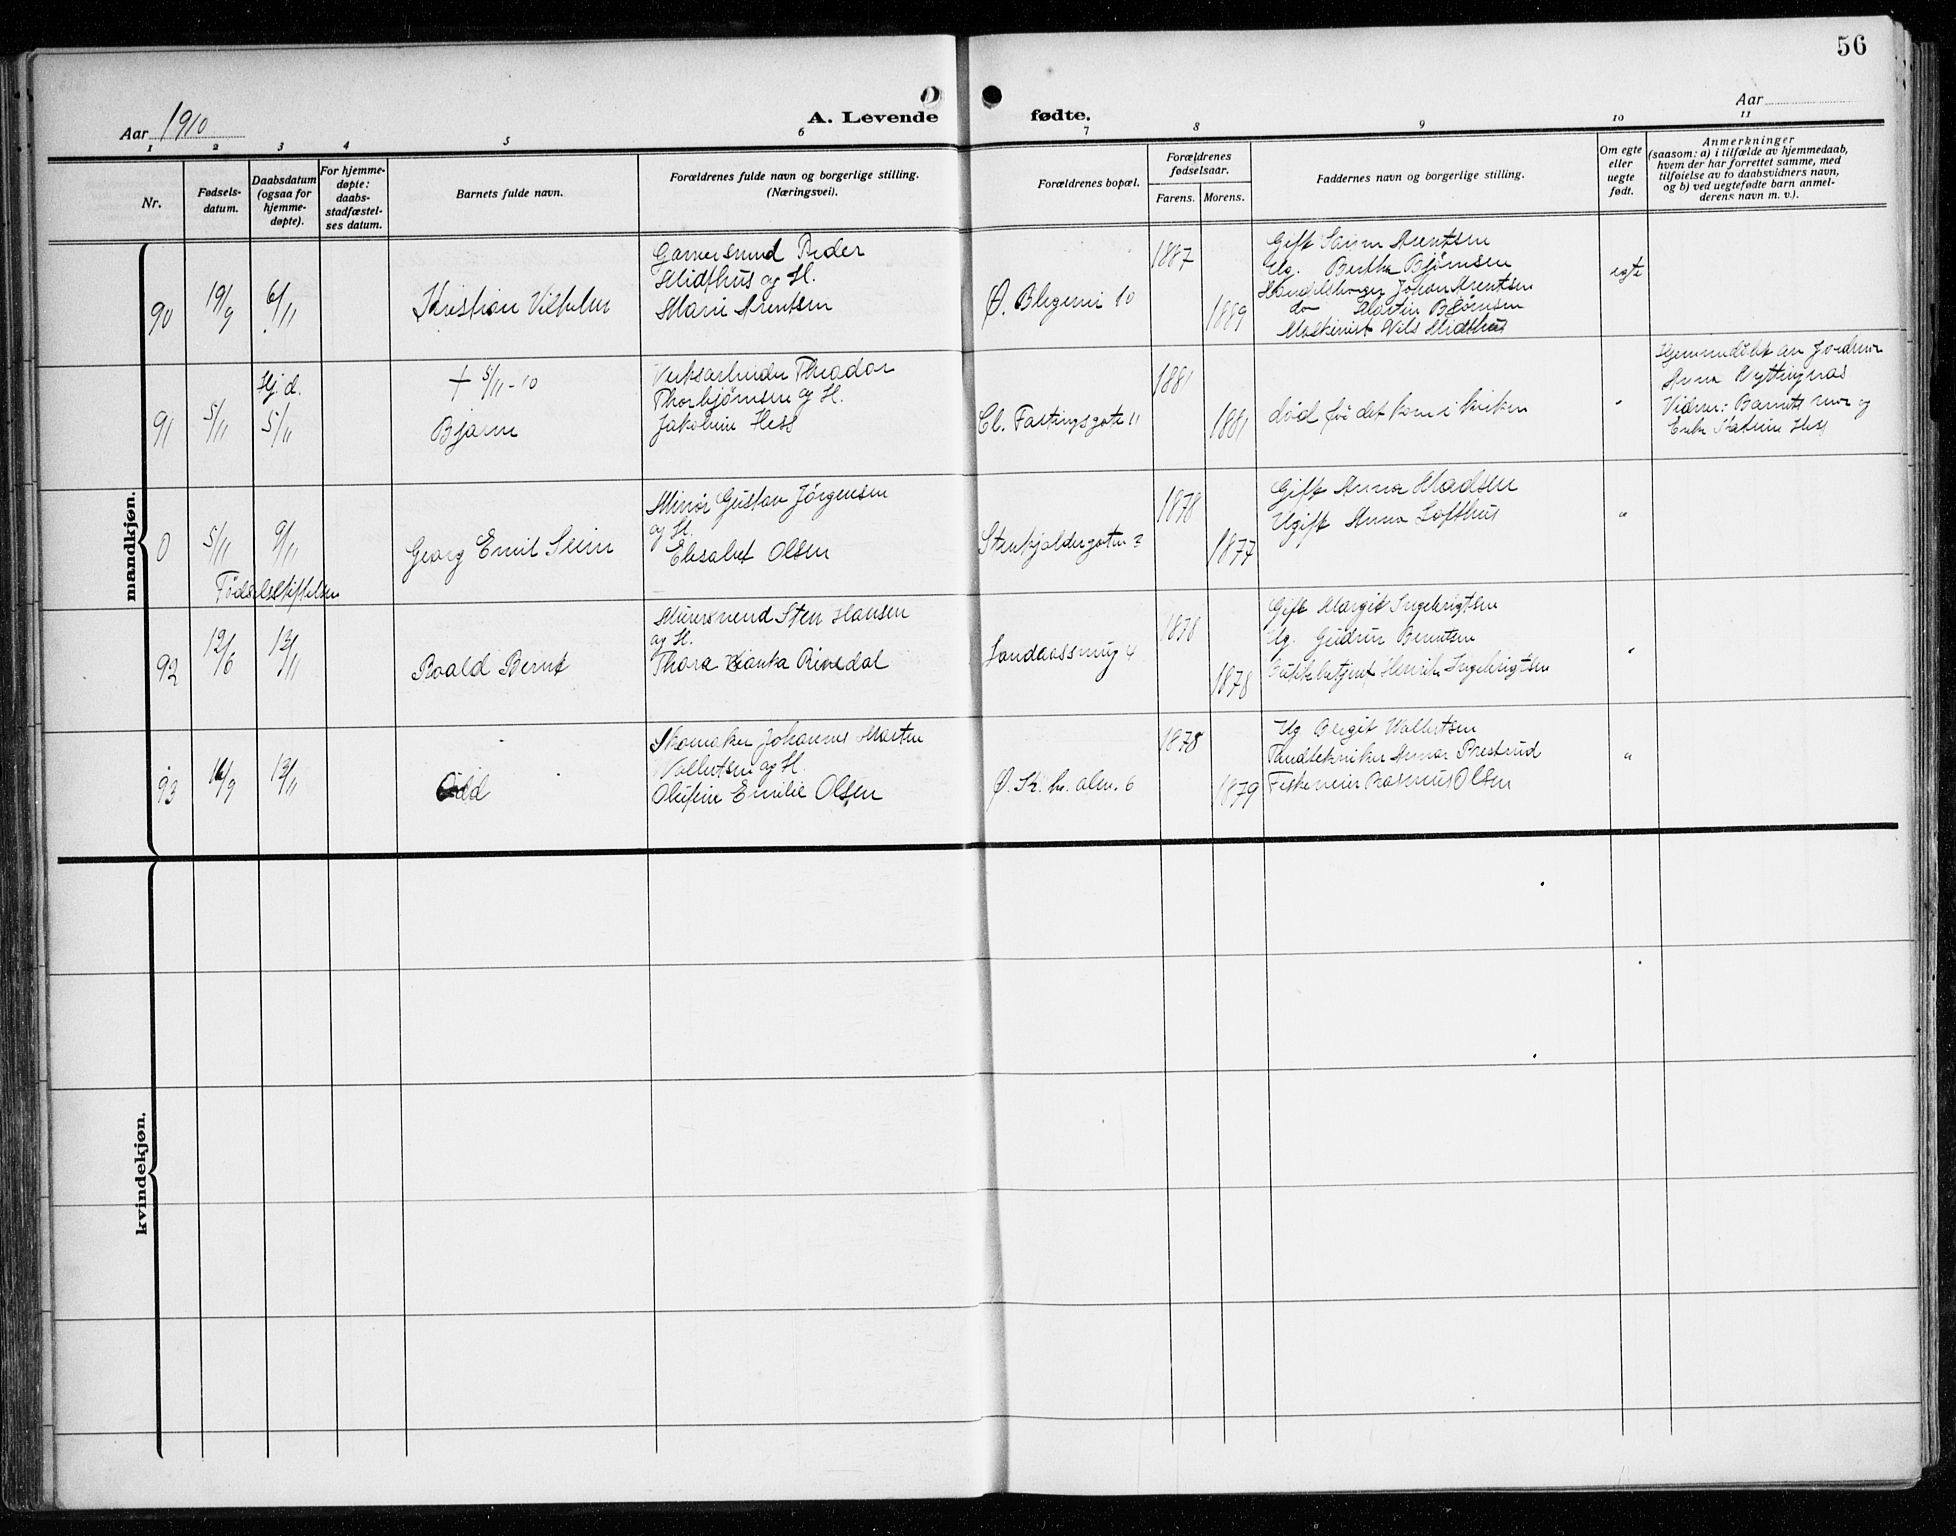 56
Aar 1910
A. Levende fødte.
Aar
1 2 3 4 5 6 7 8 9 10 11
Nr.
Fødsels-
datum.
Daabsdatum
(ogsaa for
hjemme-
døpte).
For hjemme-
døpte:
daabs-
stadfæstel-
ses datum.
Barnets fulde navn.
Forældrenes fulde navn og borgerlige stilling.
(Næringsvei).
Forældrenes bopæl.
Forældrenes
fødselsaar.
Farens. Morens.
Faddernes navn og borgerlige stilling.
Om egte
eller
uegte
født.
Anmerkninger
(saasom: a) i tilfælde av hjemmedaab,
hvem der har forrettet samme, med
tilføielse av to daabsvidners navn,
og b) ved uegtefødte barn anmel-
derens navn m. v.).
mandkjøn.
90
19/9
6/11
Kristian Vilhelm
Garversvend Peder
Midthus og H.
Marie Arentsen
Ø. Blegevei 10
1887
1889
Gift Arentsen
Ug. Bertha Bjørnsen
Johan Arentsen
do Martin Bjørnsen
Maskinist Nils Midthus
egte
91
5/11
Hj.d.
5/11
+ 5/11-10
Bjarne
Verksarbeider Theodor
Thorbjørnsen og H.
Jakobine Hess
Cl. Fastingsgate 11
1881
1881
død før det kom i kirken
"
Hjemmedøbt av Jordmor
Anna
Vidner: Barnets mor og
Enke Katrine Hess
0
5/11
9/11
Fødselsstiftelsen
Georg Emil Seim
Gustav Jørgensen
og H.
Elisabet Olsen
Stenkjeldergaten 3
1878
1877
Gift Anna Madsen
Ugift Anna Lofthus
"
92
12/6
13/11
Roald Bernt
Murersvend Sten Hansen
og H.
Thora Rivedal
Landaassmug 4
1878
1878
Gift Margit Ingebrigtsen
Ug. Gudrun Berntsen
Henrik Ingebrigtsen
"
93
16/9
13/11
Odd
Skomaker Johannes Martin
Valbertsen og H.
Olufine Emilie Olsen
Ø. Sk. h. alm. 6
1878
1879
Ug Bergit Walbertsen
Tandtekniker Annar Prestrud
Rasmus Olsen
"
kvindekjøn.